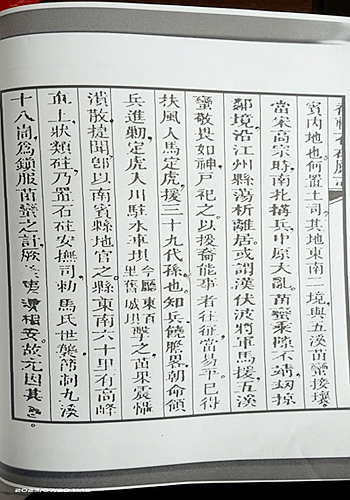 賓內地也何置土司其地東南二境與五溪苗蠻接壤
當宋高宗時南北搆兵中原大亂苗蠻乘隙不靖刼掠
鄰境沿江州縣蕩析離居或謂漢伏波將軍馬援五溪
蠻敬畏如神戶祀之以援裔能事者往征當易平已得
扶風人馬定虎援三十九代孫也知兵饒膽畧朝命領
兵進勦定虎入川駐水車壩今廳東百里舊城壩擊之苗果震慴
潰散捷聞卽以南賓縣地官之縣東南六十里有高峰
上狀類硅乃置石硅安撫司勅馬氏世襲節制九溪
十八峒為鎮服苗蠻之計厥 夷漢相安故元因其
2023/07/20